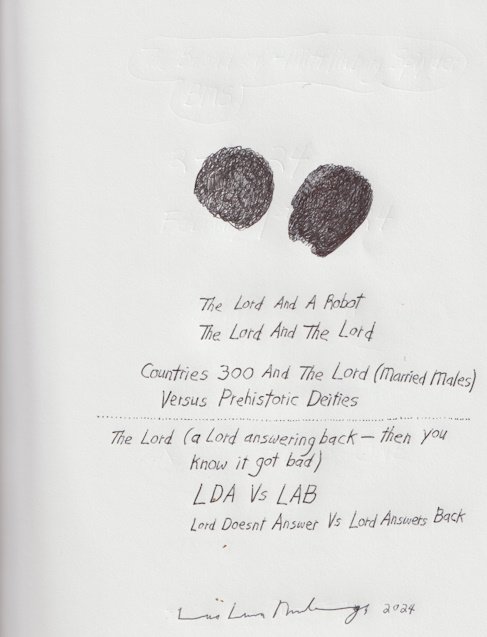 The Lord And A Robot
The Lord And The Lord
Countries 300 And The Lord (Married Males)
Versus Prehistoric Deities
The Lord (a Lord answering back — then you
know it got bad)
LDA Vs LAB
Lord Doesnt Answer Vs Lord Answers Back
2024